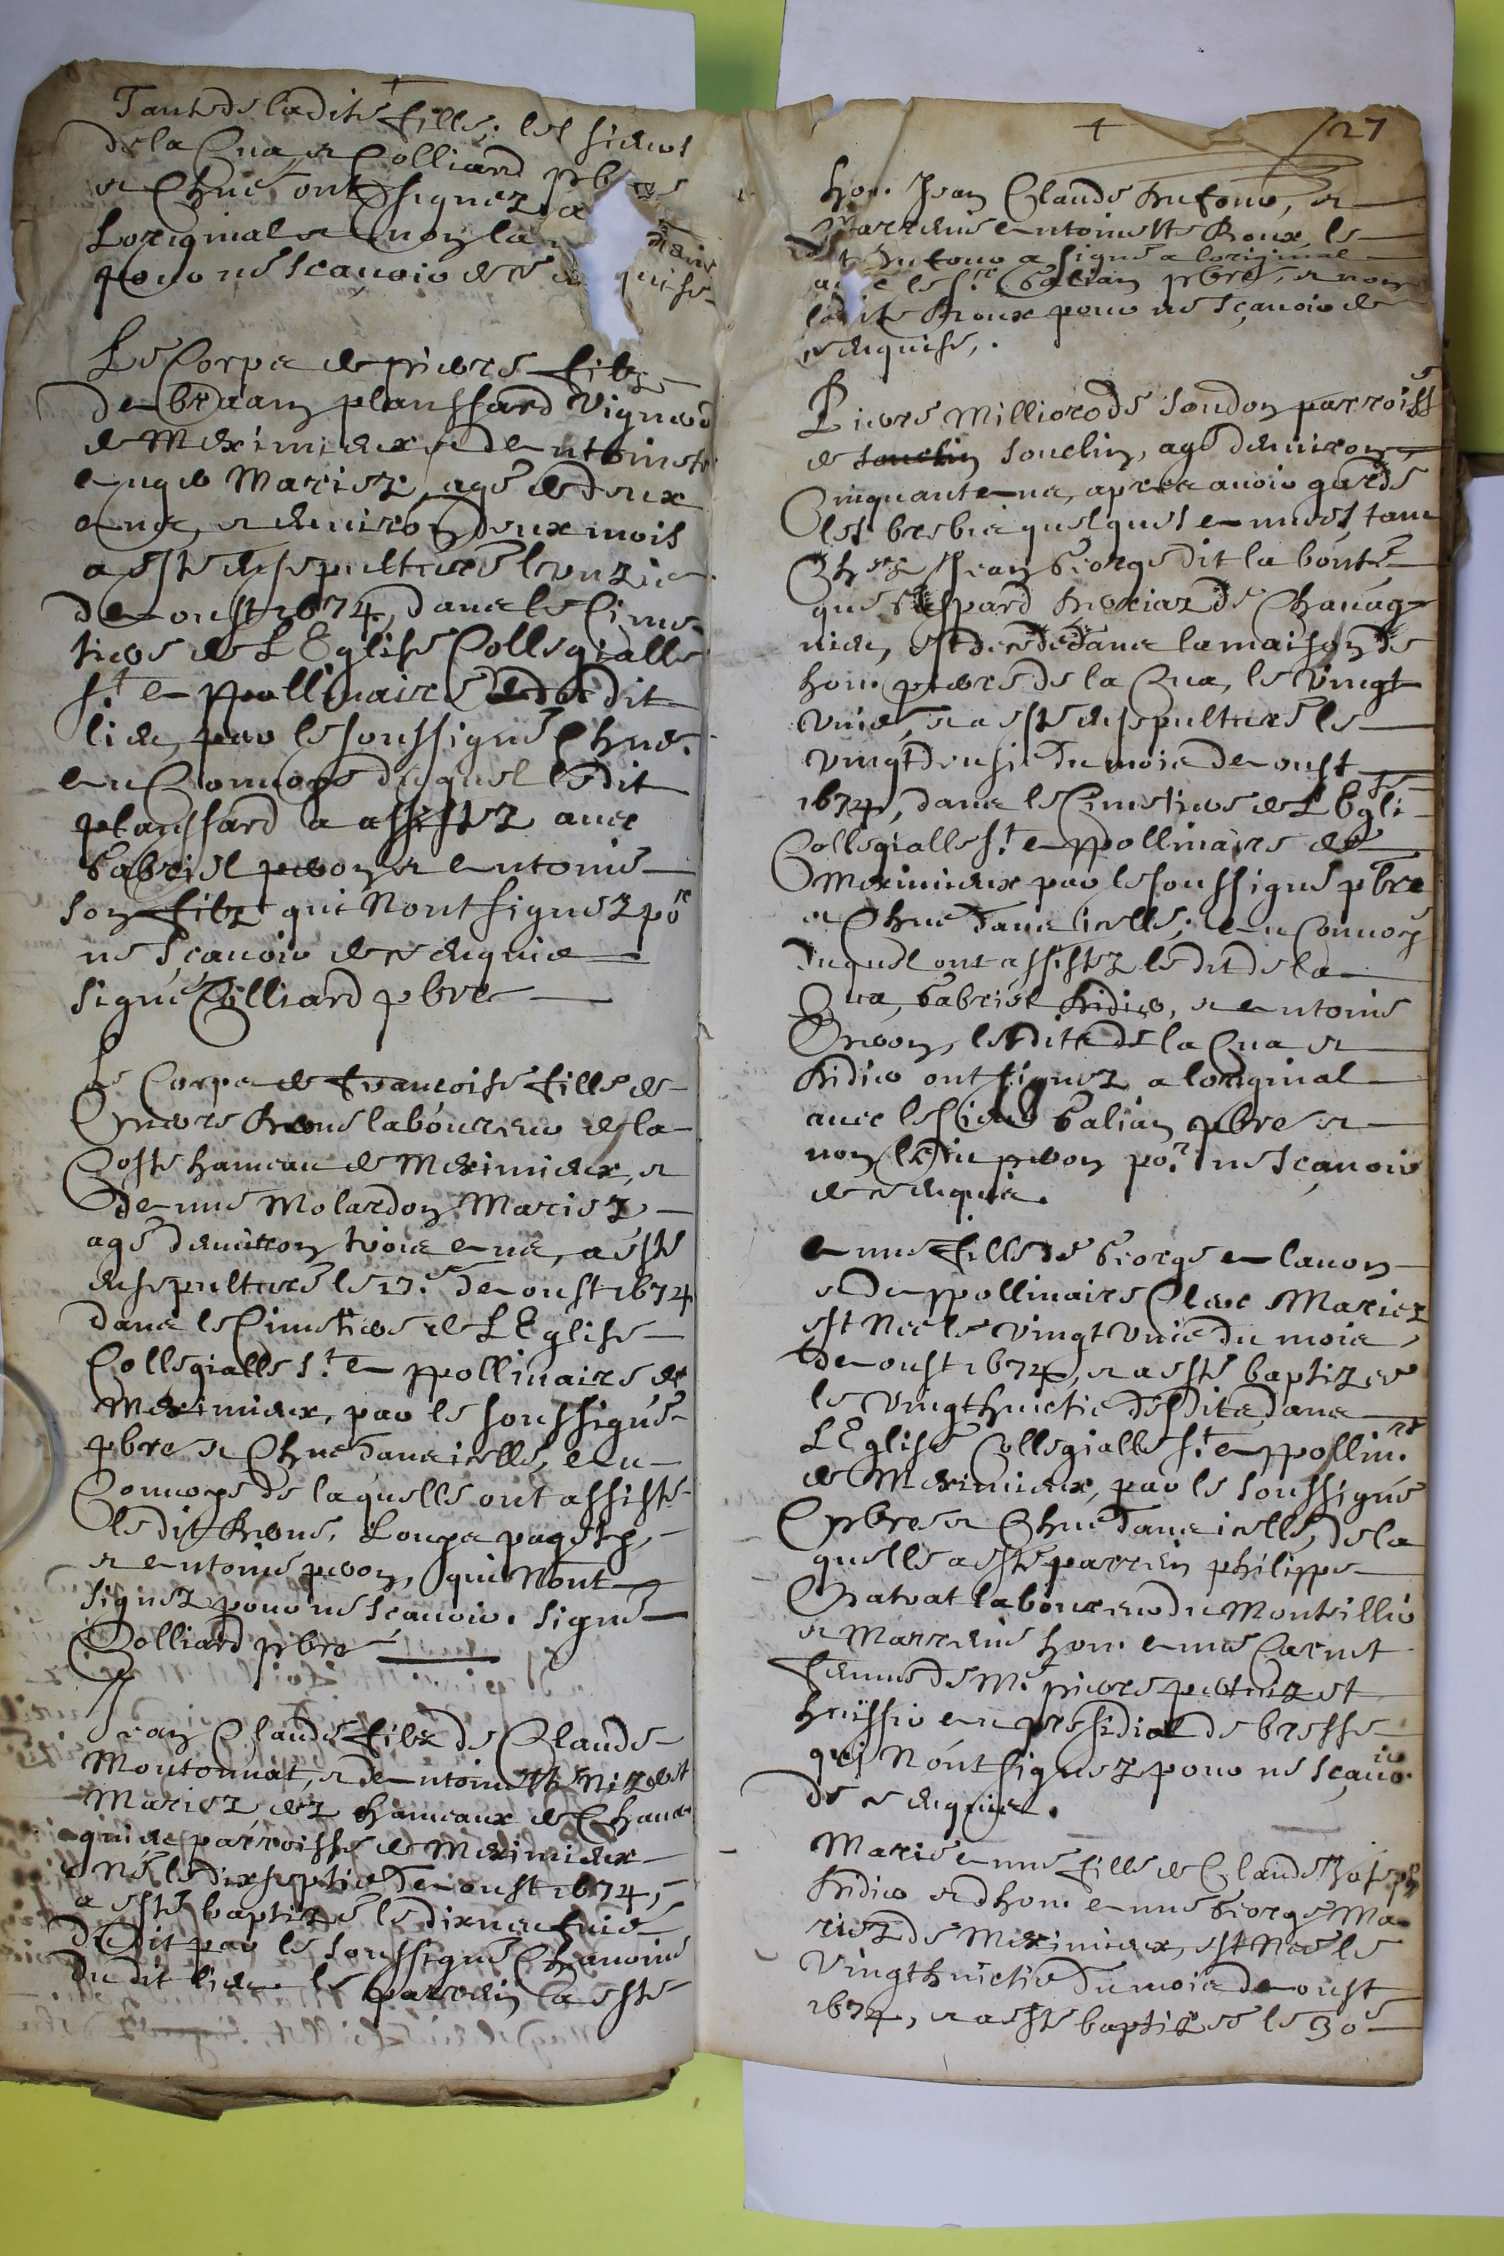 Tante de ladite fille, les sieurs
de la Cua, et Colliard pbres
et Chne ont signez a
Loriginal et non la
pour ne scavoir de ce quise
Le Corps de pierre filz
de bran planssard Vigneron
de Meximieux et dentoinette
mariez, agé de deux
ens, et denviron deux mois
a esté ensepulturé le unzie
de oust 1674, dans le Cime
tiere de LEglise Collegialle
St eppollinaire dudit
lieu, par le soussigné Chne.
en Convoye duquel ledit
planssard a assistez avec
Gabriel et entoine
son filz qui Nont signez por
ne Sçavoir de ce enquis
signé Colliard pbre
Le Corps de francoise fille de
pierre labóureur de la
Coste hameau de Meximieux, et
de enne Molardon Mariez
agé denviron trois ens, a esté
ensepulturé le 17e de oust 1674
dans le Cimetiere de LEglise
Collegialle St eppollinaire de
Meximieux, par le soussigné
pbre et Chne dans icelle, en
Convoye de laquelle ont assisté
ledit
et entoine, qui Nont
signez pour ne scavoir. signé
Colliard pbre
Jean Claude filz de Claude
Montonnat, et dentoinette
Mariez des hameaux de Chava
gnieu parroisse de Meximieux
e Né le dixseptie de oust 1674,
a esté baptizé le dixneufvie
dudit par le soussigné Chanoine
du dit lieu le parrein a esté
27
hon. Jean Claude Dufour, et
Marreine entoinette Roux, le
dit Dufour a signé a loriginal
avec le sr Galian pbre, et non
ladite Roux pour ne sçavoir de
ce enquise.
Pierre Milliorode soudon parroisse
de souclin, agé denviron
Cinquante ens, apres avoir gardé
les brebis quelques ennees, tant
Chez Jean George dit la bónté
que Gaspard de Chavag
nieu, est decedé dans la maison de
hon. pierre de la Cua, le vingt
unie, et a esté ensepulturé le
vingtdeusie du mois de oust
1674, dans le Cimetiere de LEglise
Collegialle St eppollinaire de
Meximieux par le soussigné pbre
et Chne dans icelle, en Convoy
duquel ont assistez ledit de la
Cua, Gabriel Didier, et entoine
lesdits de la Cua et
Didier ont signez a loriginal
avec le sieur Galian pbre et
non ledit por ne sçavoir
de ce enquis.
enne fille de George enlavon
et deppollinaire Clerc Mariez
est Nee le vingt Unie du mois
de oust 1674, et a esté baptizee
le Vingthuictie desdits dans
LEglise Collegialle St eppollinre
de Meximieux, par le soussigné
pbre et Chne dans icelle, de la
quelle a esté parrein philippe
Chatvat laboureur du Montellier
et Marreine hon. enne Carnet
femme de Me pierre et
huissier en presidial de bresse
qui Nónt signez pour ne sçavoir
de ce enquis.
Marie enne fille de Claude Joseph
Didier et dhon. enne George Ma
riez de Meximieux, est Nee le
Vingthuictie du mois de oust
1674, et a esté baptizee le 30e